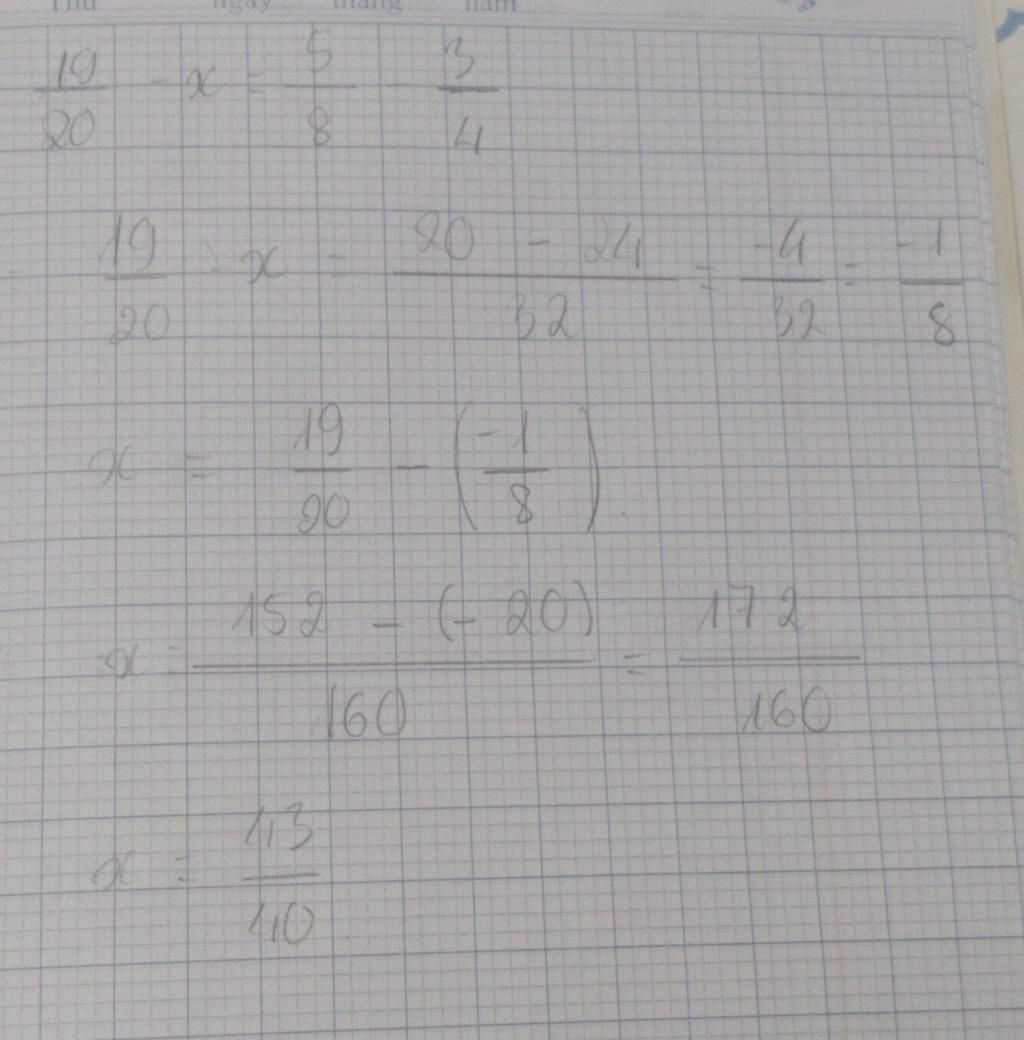 Thứ ngày tháng năm
19/20 - x = 5/8 - 3/4
= 19/20 - x = (20 - 24)/32 = -4/32 = -1/8
x = 19/20 - (-1/8)
x = (152 - (-20))/160 = 172/160
x = 43/40